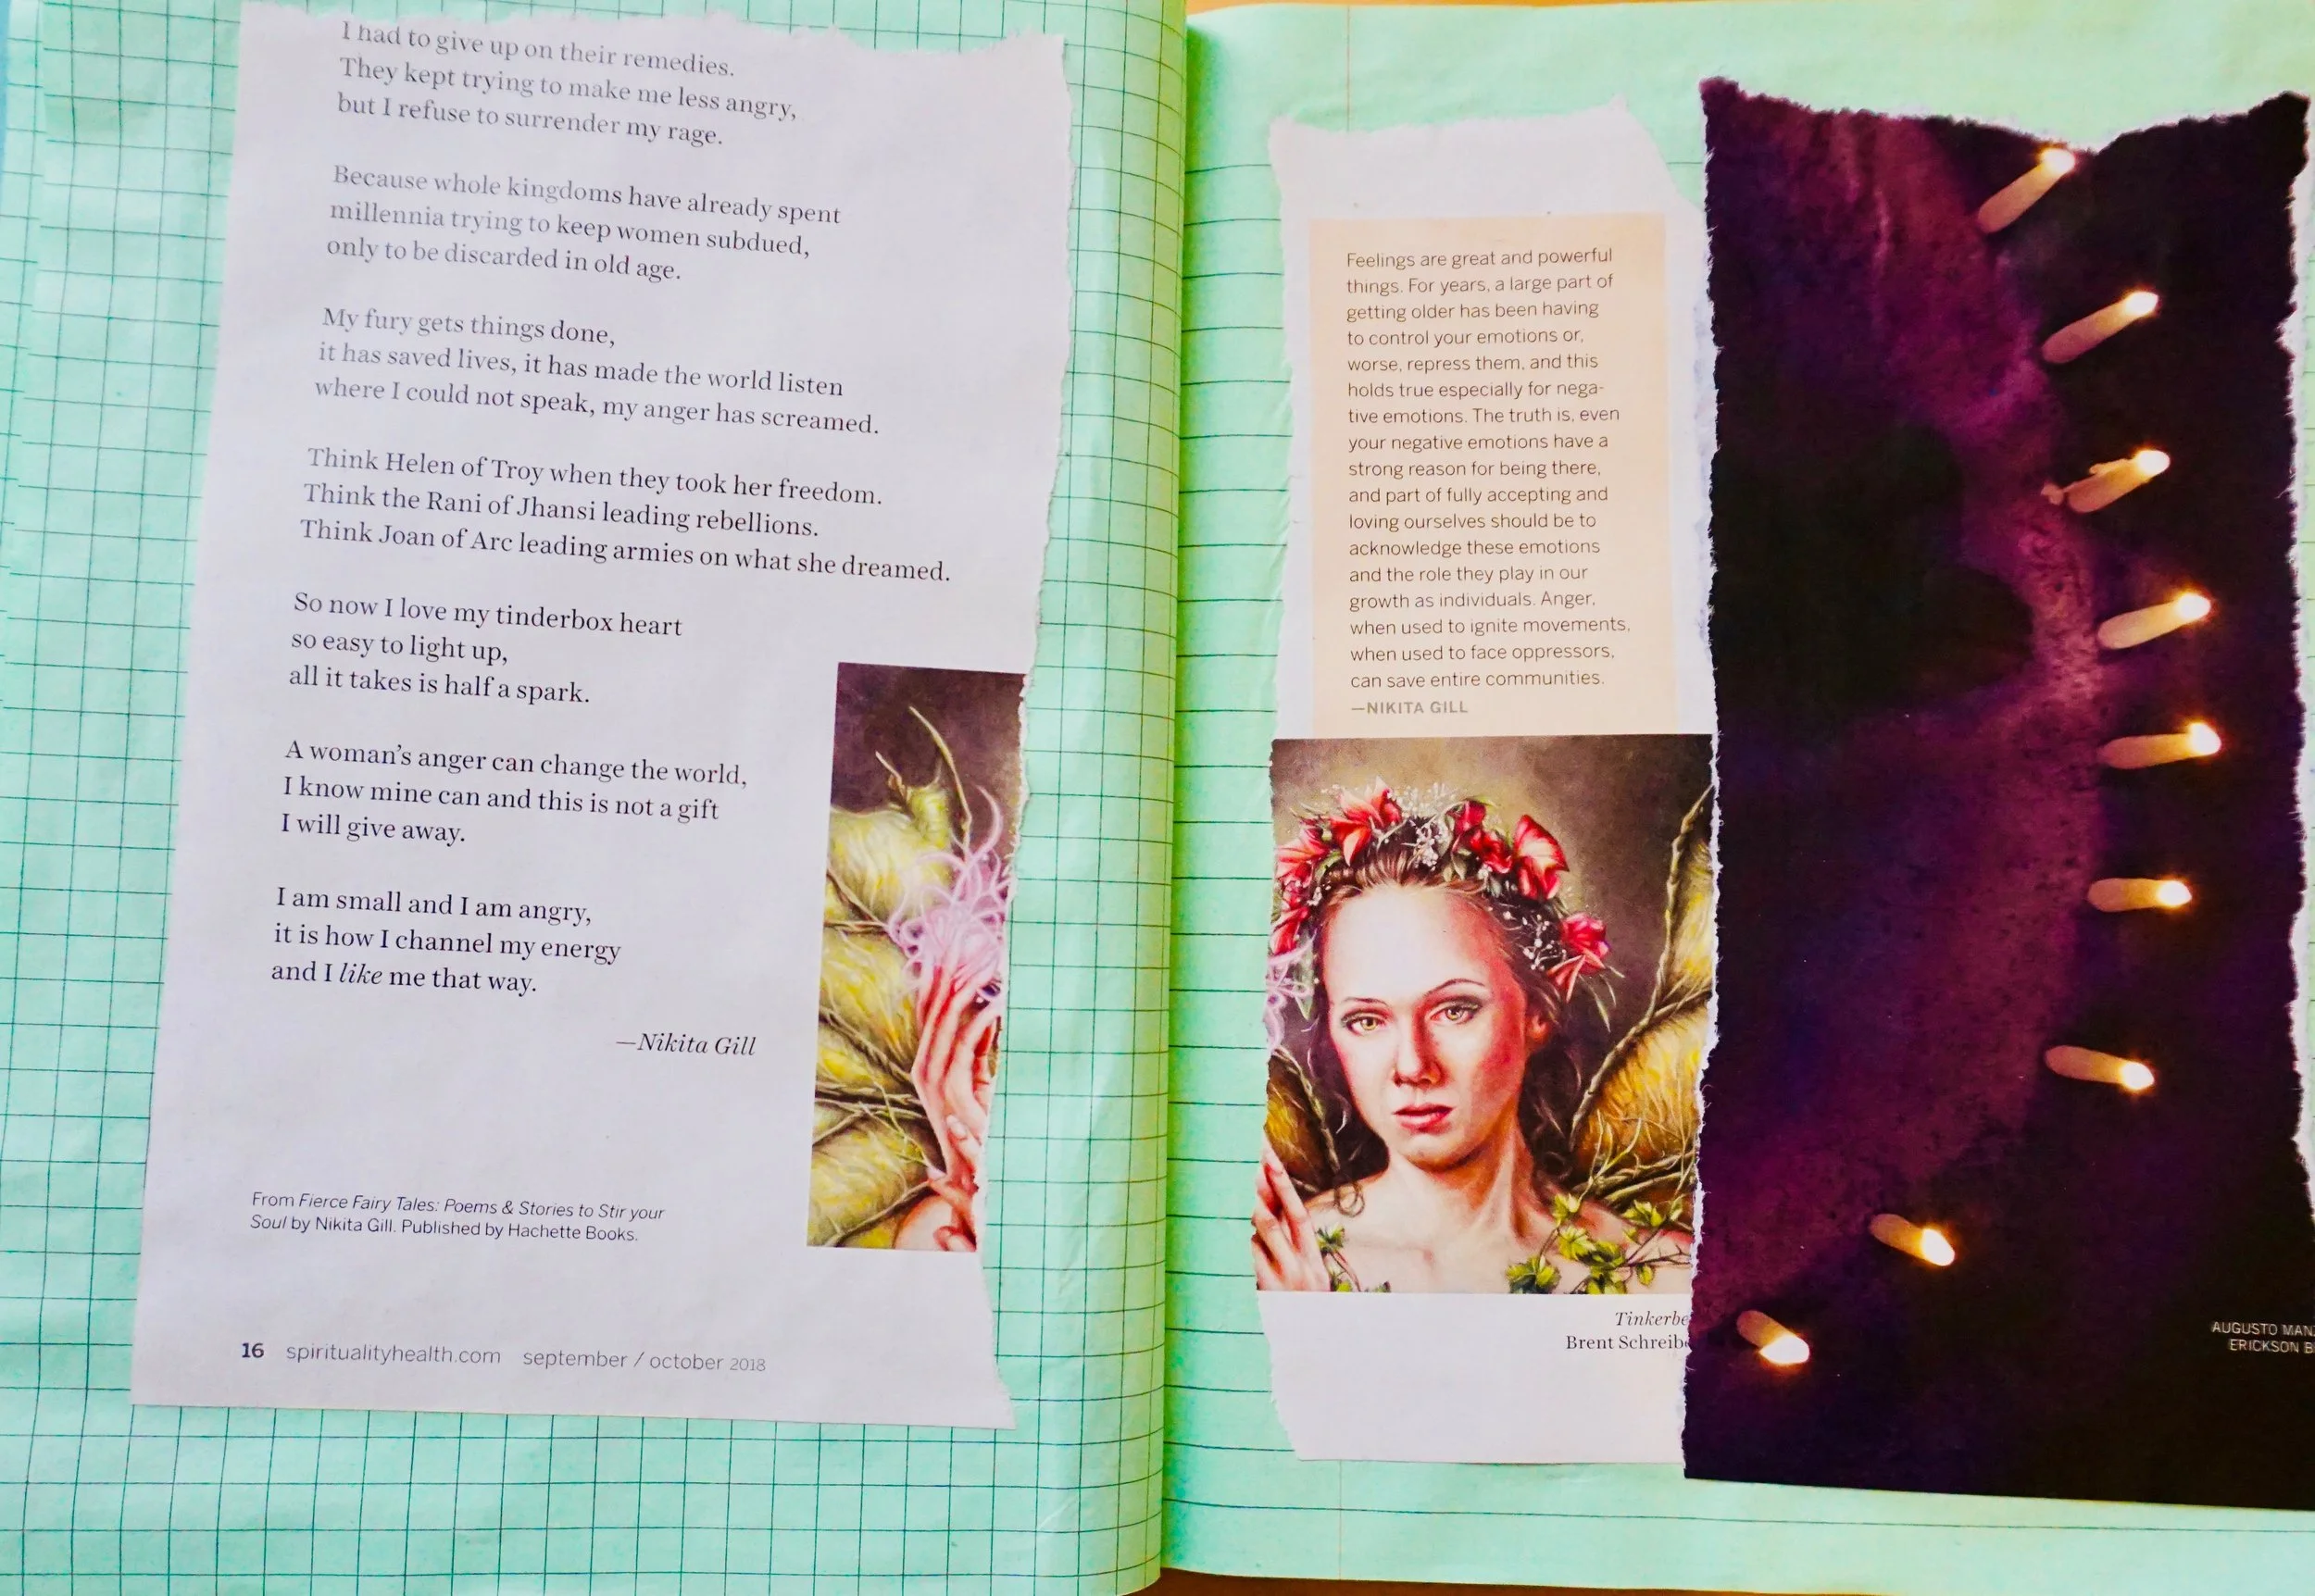 I had to give up on their remedies.
They kept trying to make me less angry,
but I refuse to surrender my rage.
Because whole kingdoms have already spent
millennia trying to keep women subdued,
only to be discarded in old age.
My fury gets things done,
it has saved lives, it has made the world listen
where I could not speak, my anger has screamed.
Think Helen of Troy when they took her freedom.
Think the Rani of Jhansi leading rebellions.
Think Joan of Arc leading armies on what she dreamed.
So now I love my tinderbox heart
so easy to light up,
all it takes is half a spark.
A woman’s anger can change the world,
I know mine can and this is not a gift
I will give away.
I am small and I am angry,
it is how I channel my energy
and I like me that way.
—Nikita Gill
From Fierce Fairy Tales: Poems & Stories to Stir your
Soul by Nikita Gill. Published by Hachette Books.
16 spiritualityhealth.com september / october 2018
Feelings are great and powerful
things. For years, a large part of
getting older has been having
to control your emotions or,
worse, repress them, and this
holds true especially for nega-
tive emotions. The truth is, even
your negative emotions have a
strong reason for being there,
and part of fully accepting and
loving ourselves should be to
acknowledge these emotions
and the role they play in our
growth as individuals. Anger,
when used to ignite movements,
when used to face oppressors,
can save entire communities.
—NIKITA GILL
Tinkerbe
Brent Schreib
AUGUSTO MAN
ERICKSON B